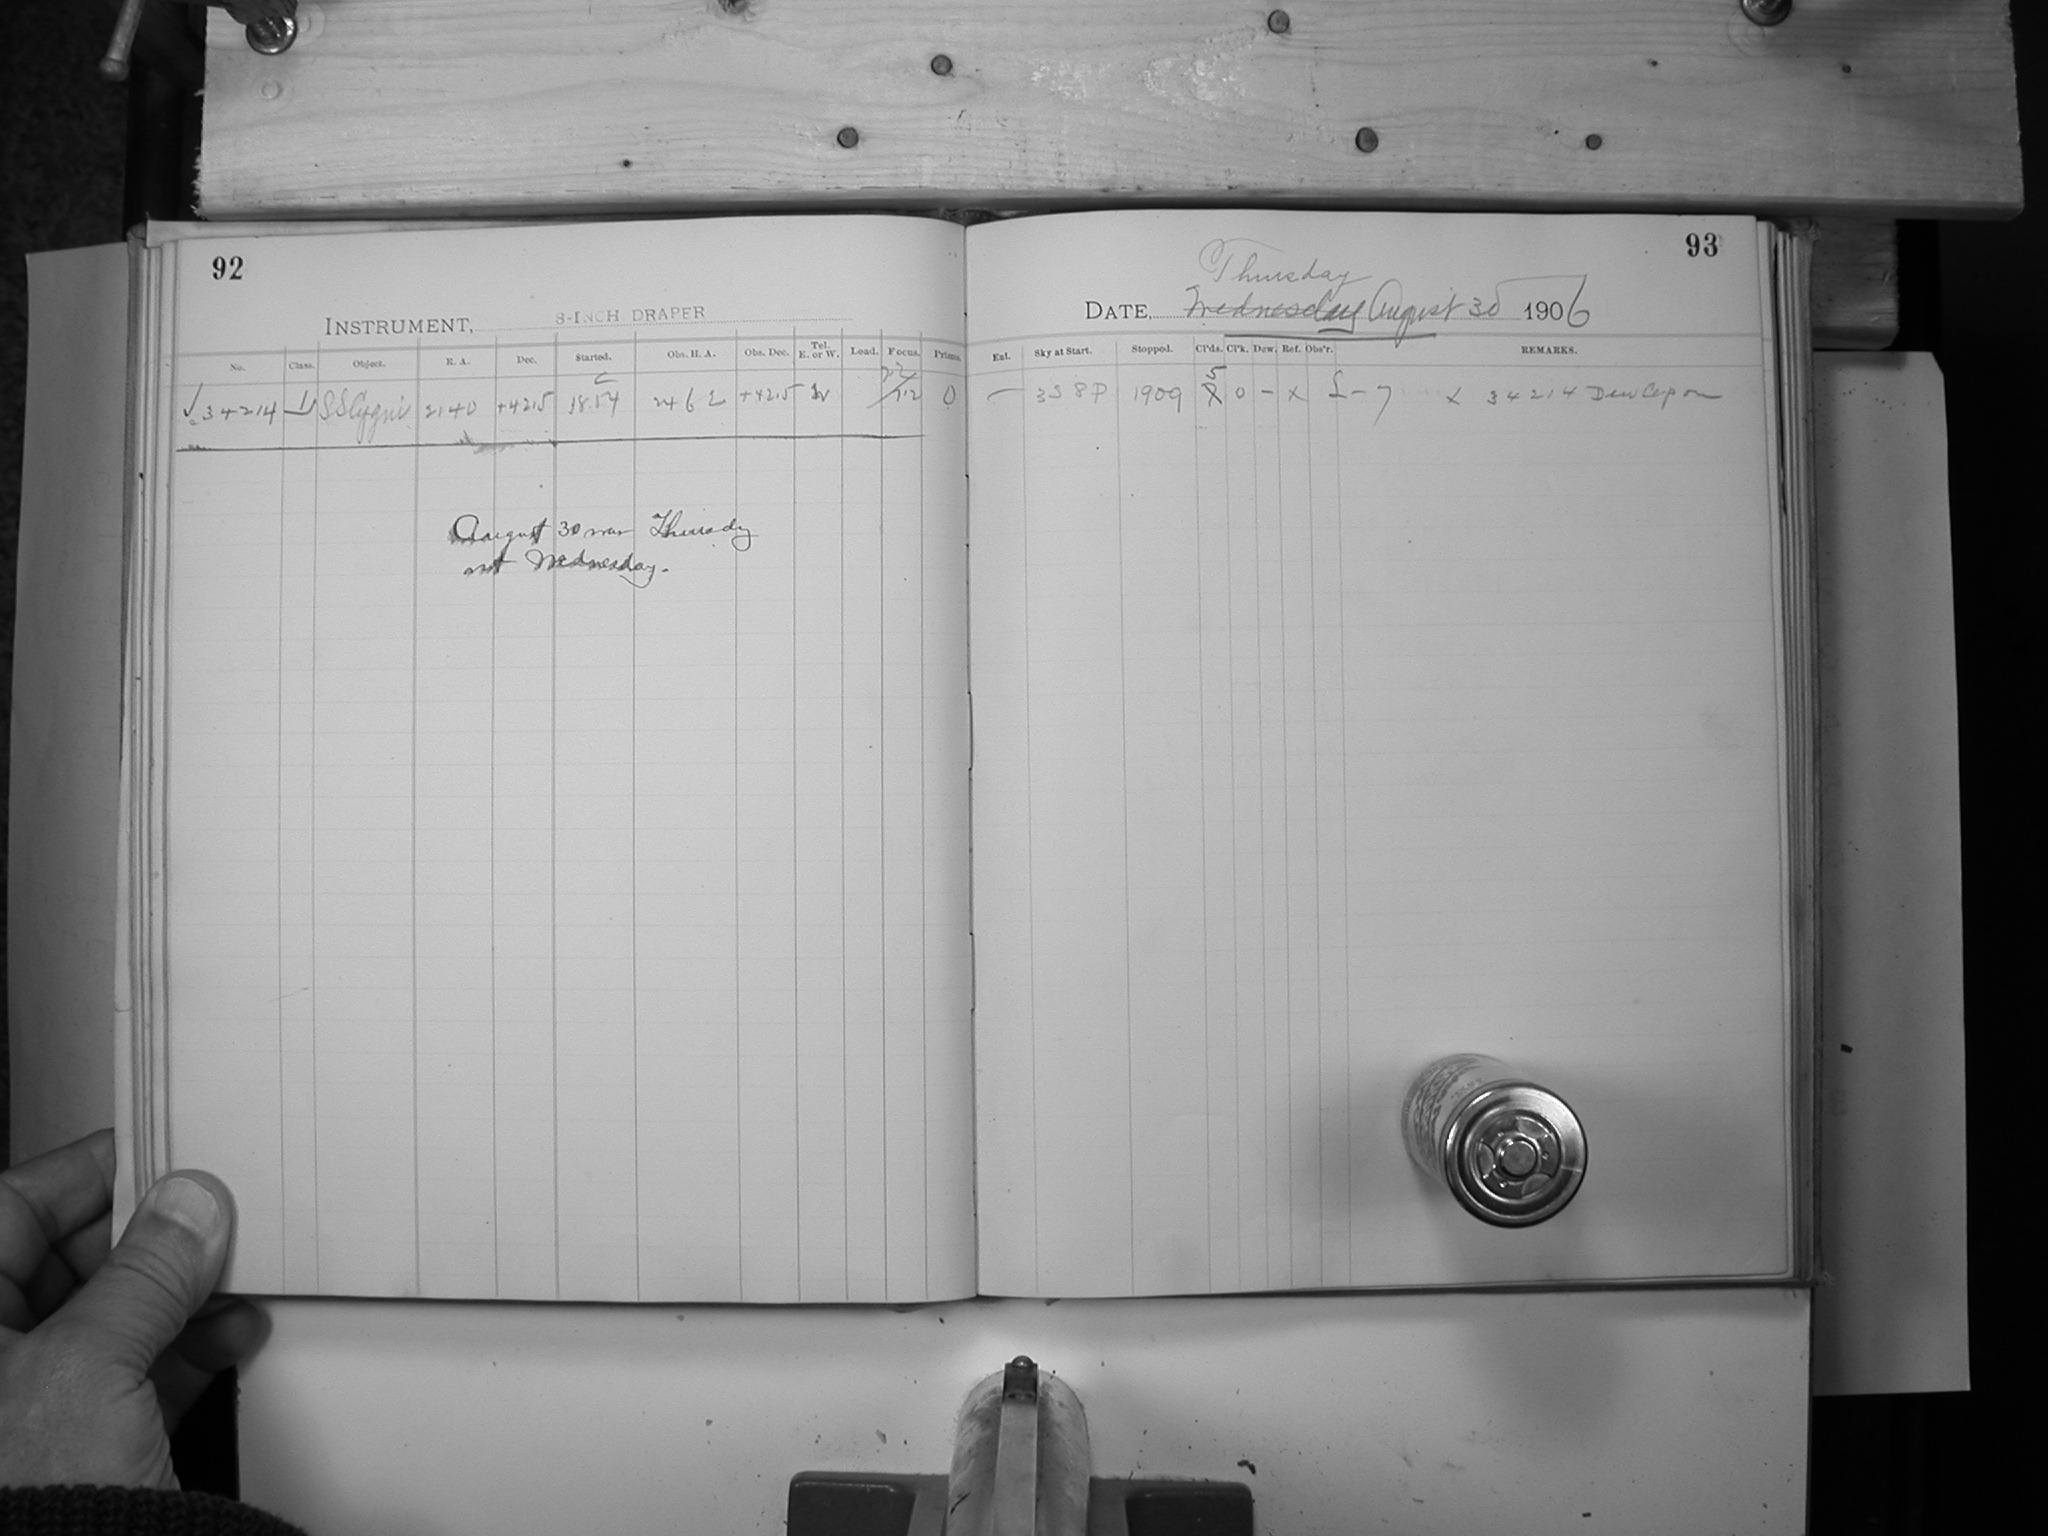 92
INSTRUMENT, 8-INCH DRAPER
No. Class. Object. R. A. Dec. Started. Obs. H. A. Obs. Dec. Tel. E. or W. Lead. Focus. Prisms.
22
✓ 34214 SS Cygni 2140 +42.5 18.54 24 6 E +42.5 W 0
August 30 was Thursday
not Wednesday.
93
Thursday
DATE, Wednesday August 30 1906
Ent. Sky at Start. Stopped. Cl'ds. Cl'k. Dew. Ref. Obs'r. REMARKS.
5
— 3S 8P 1909 X 0 – x £ – 7 x 34214 Dew Cap on